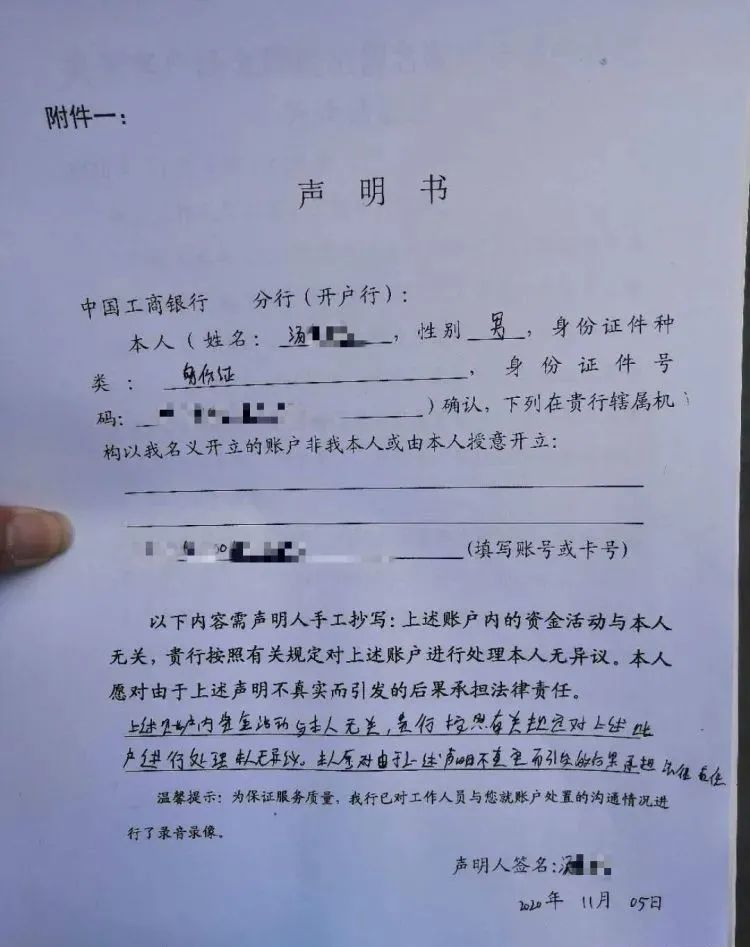 附件一:
声 明 书
中国工商银行 分行(开户行):
本人(姓名: 汤 ,性别 男 ,身份证件种
类: 身份证 ,身份证件号
码: )确认,下列在贵行辖属机
构以我名义开立的账户非我本人或由本人授意开立:
(填写账号或卡号)
以下内容需声明人手工抄写:上述账户内的资金活动与本人
无关,贵行按照有关规定对上述账户进行处理本人无异议。本人
愿对由于上述声明不真实而引发的后果承担法律责任。
上述账户内资金活动与本人无关,贵行按照有关规定对上述账
户进行处理本人无异议。本人愿对由于上述声明不真实而引发的后果承担 责任
温馨提示:为保证服务质量,我行已对工作人员与您就账户处置的沟通情况进
行了录音录像。
声明人签名:汤
2020年 11月 05日